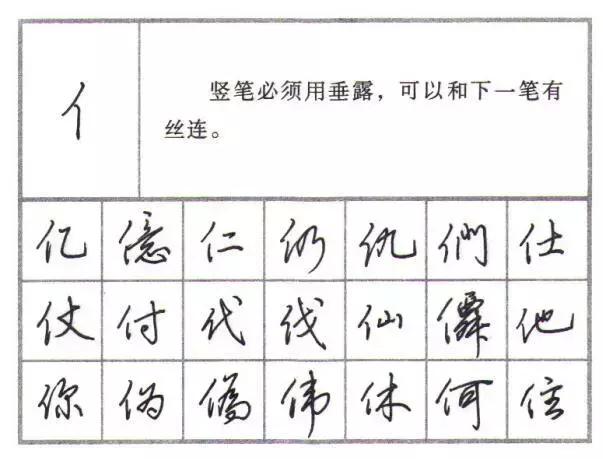 亻
竖笔必须用垂露，可以和下一笔有
丝连。
亿 億 仁 仍 仇 們 仕
仗 付 代 伐 仙 僊 他
你 伪 偽 伟 休 何 住